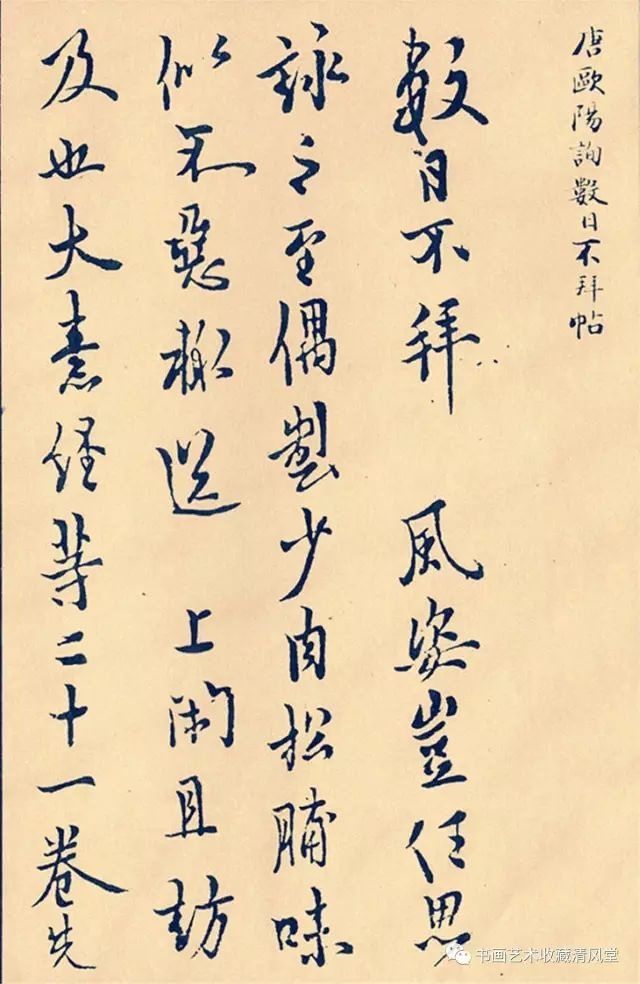 唐歐陽詢數日不拜帖
數日不拜 風姿豈任思
詠之至偶製少肉松脯味
似不惡輒送 上閑且訪
及也大經等二十一卷先
书画艺术收藏清风堂